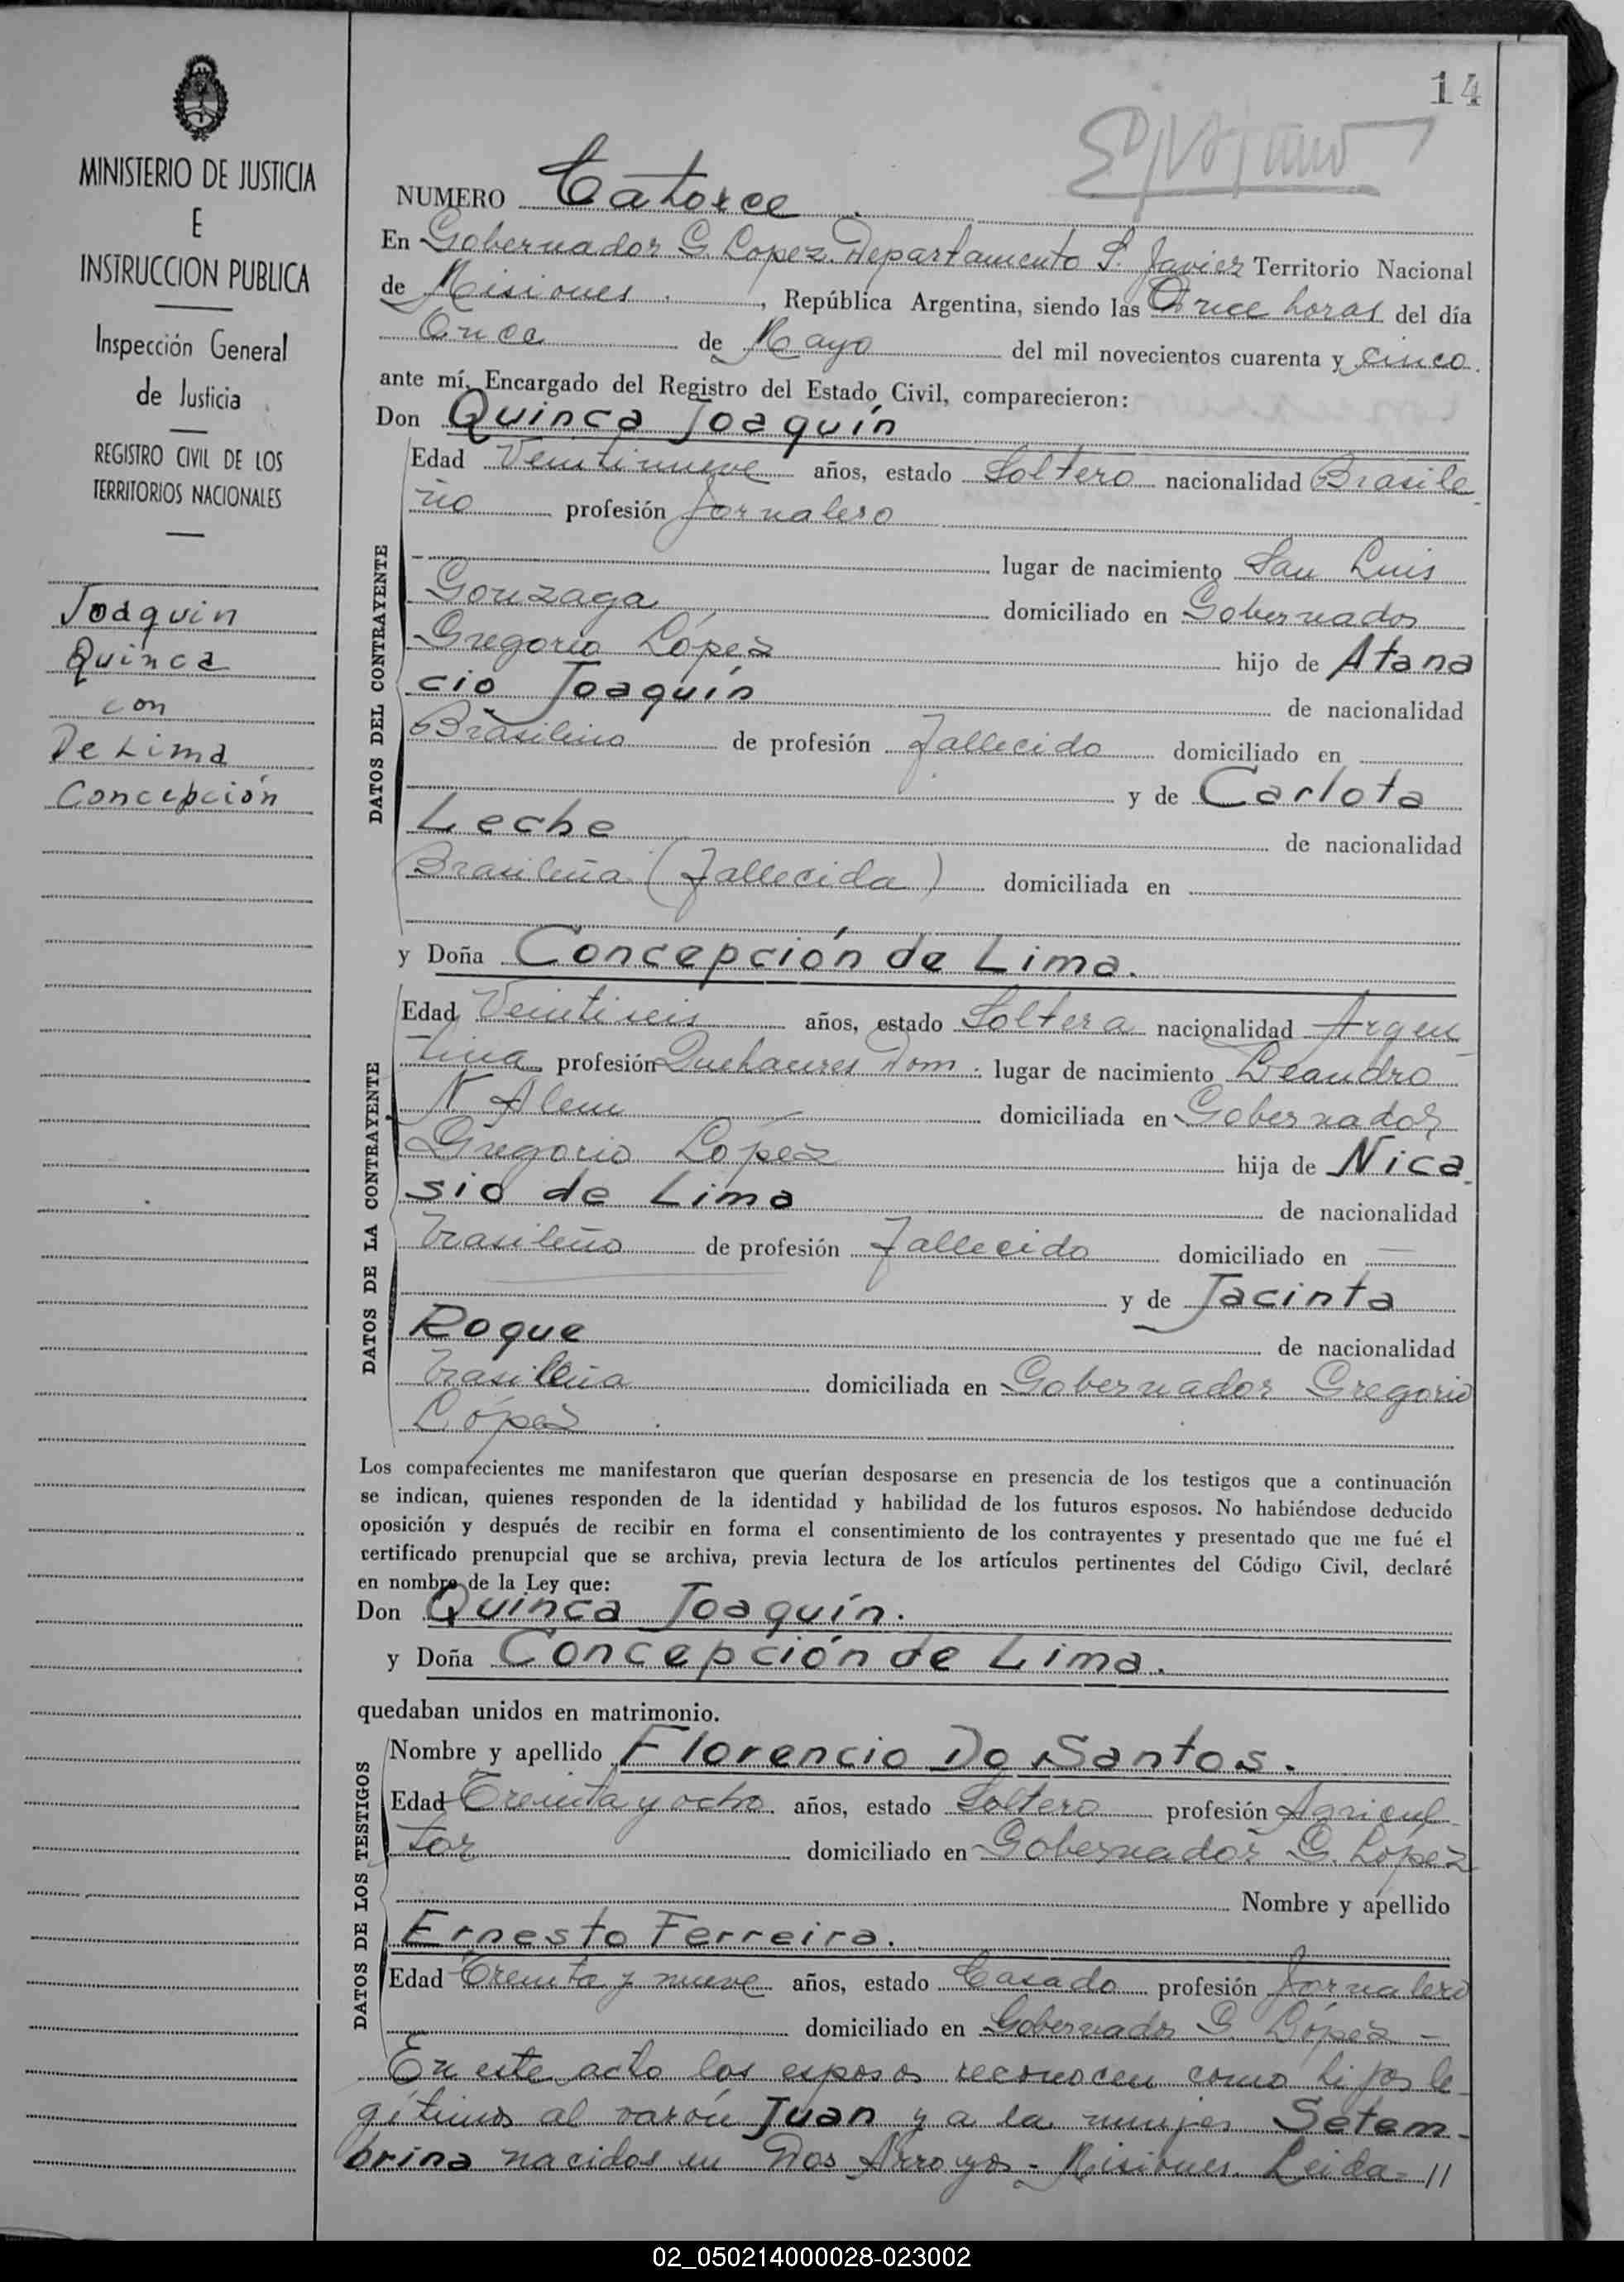 14
MINISTERIO DE JUSTICIA
E
INSTRUCCION PUBLICA
Inspección General
de Justicia
REGISTRO CIVIL DE LOS
TERRITORIOS NACIONALES
Joaquin
Quinca
con
De Lima
Concepción
NUMERO Catorce
En Gobernador G. Lopez Departamento S. Javier Territorio Nacional
de Misiones, República Argentina, siendo las Once horas del día
Once de Mayo del mil novecientos cuarenta y cinco.
ante mí, Encargado del Registro del Estado Civil, comparecieron:
Don Quinca Joaquín
DATOS DEL CONTRAYENTE
Edad Veintinueve años, estado Soltero nacionalidad Brasile
ño profesión Jornalero
lugar de nacimiento San Luis
Gonzaga domiciliado en Gobernador
Gregorio López hijo de Atana
cio Joaquín de nacionalidad
Brasileño de profesión Fallecido domiciliado en
y de Carlota
Leche de nacionalidad
Brasileña (Fallecida) domiciliada en
y Doña Concepción de Lima.
DATOS DE LA CONTRAYENTE
Edad Veintiseis años, estado Soltera nacionalidad Argen
tina profesión Quehaceres Dom. lugar de nacimiento Leandro
N Alem domiciliada en Gobernador
Gregorio López hija de Nica
sio de Lima de nacionalidad
brasileño de profesión Fallecido domiciliado en —
y de Jacinta
Roque de nacionalidad
brasileña domiciliada en Gobernador Gregorio
López
Los comparecientes me manifestaron que querían desposarse en presencia de los testigos que a continuación
se indican, quienes responden de la identidad y habilidad de los futuros esposos. No habiéndose deducido
oposición y después de recibir en forma el consentimiento de los contrayentes y presentado que me fué el
certificado prenupcial que se archiva, previa lectura de los artículos pertinentes del Código Civil, declaré
en nombre de la Ley que:
Don Quinca Joaquín.
y Doña Concepción de Lima.
quedaban unidos en matrimonio.
DATOS DE LOS TESTIGOS
Nombre y apellido Florencio Do Santos.
Edad Treinta y ocho años, estado Soltero profesión Agricul
tor domiciliado en Gobernador G. López
Nombre y apellido
Ernesto Ferreira.
Edad Treinta y nueve años, estado Casado profesión Jornalero
domiciliado en Gobernador G. López —
En este acto los esposos reconocen como hijos le
gítimos al varón Juan y a la mujer Setem-
brina nacidos en Dos Arroyos - Misiones. Leida - //
02_050214000028-023002